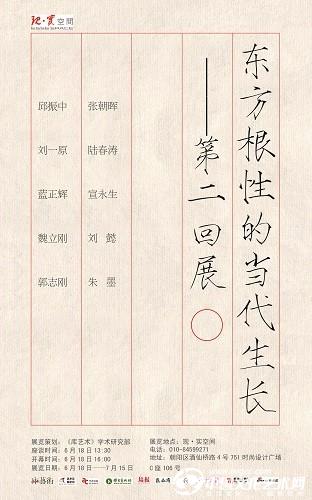 现·实空间
东方根性的当代生长
——第二回展
邱振中 张朝晖
刘一原 陆春涛
蓝正辉 宣永生
魏立刚 刘懿
郭志刚 朱墨
展览策划：《库艺术》学术研究部
座谈时间：6月18日 13:30
开幕时间：6月18日 16:00
展览日期：6月18日——7月15日
展览地点：现·实空间
电话：010-84599271
地址：朝阳区酒仙桥路4号751时尚设计广场
C座106号